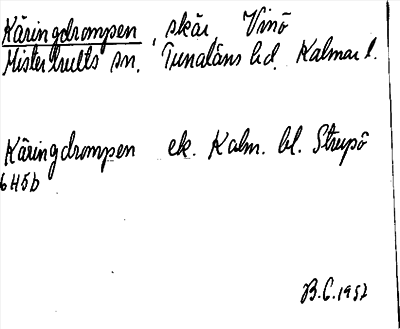 Käringdrompen, skär, Vinö
Misterhults sn. Tunaläns hd. Kalmar l.
Käringdrompen ek. Kalm. bl. Strupö
6H5b
B.C. 1952